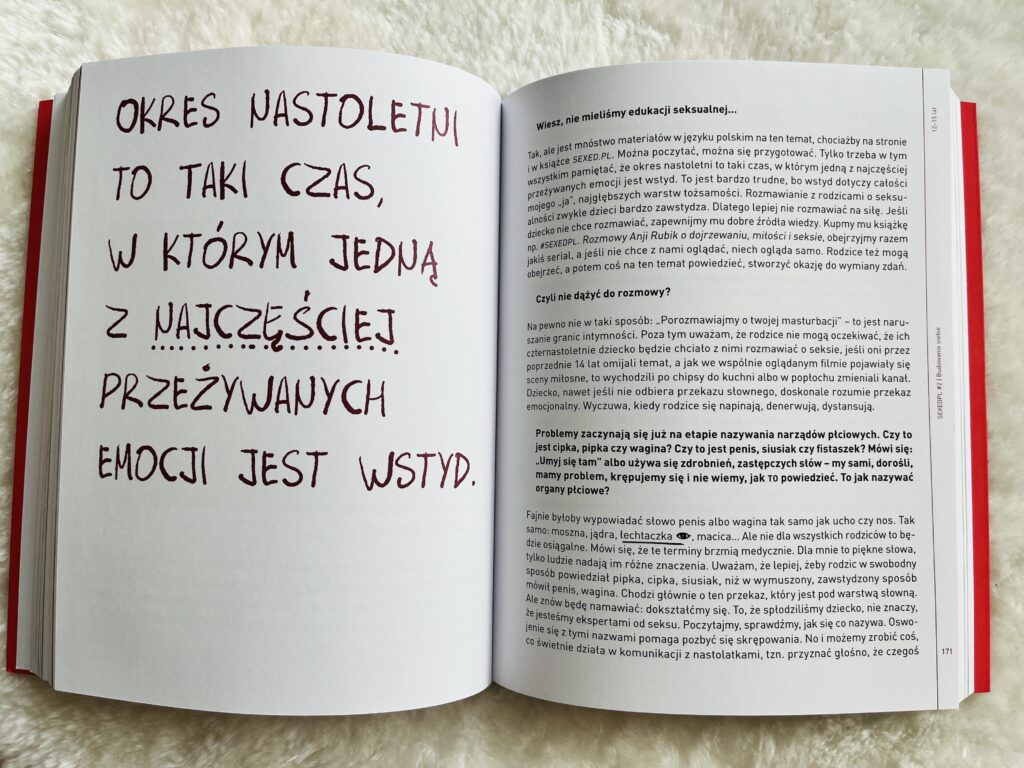 OKRES NASTOLETNI
TO TAKI CZAS,
W KTÓRYM JEDNĄ
Z NAJCZĘŚCIEJ
PRZEŻYWANYCH
EMOCJI JEST WSTYD.
Wiesz, nie mieliśmy edukacji seksualnej...
Tak, ale jest mnóstwo materiałów w języku polskim na ten temat, chociażby na stronie
i w książce SEXED.PL. Można poczytać, można się przygotować. Tylko trzeba w tym
wszystkim pamiętać, że okres nastoletni to taki czas, w którym jedną z najczęściej
przeżywanych emocji jest wstyd. To jest bardzo trudne, bo wstyd dotyczy całości
mojego „ja”, najgłębszych warstw tożsamości. Rozmawianie z rodzicami o seksu-
alności zwykle dzieci bardzo zawstydza. Dlatego lepiej nie rozmawiać na siłę. Jeśli
dziecko nie chce rozmawiać, zapewnijmy mu dobre źródła wiedzy. Kupmy mu książkę
np. #SEXEDPL. Rozmowy Anji Rubik o dojrzewaniu, miłości i seksie, obejrzyjmy razem
jakiś serial, a jeśli nie chce z nami oglądać, niech ogląda samo. Rodzice też mogą
obejrzeć, a potem coś na ten temat powiedzieć, stworzyć okazję do wymiany zdań.
Czyli nie dążyć do rozmowy?
Na pewno nie w taki sposób: „Porozmawiajmy o twojej masturbacji” – to jest naru-
szanie granic intymności. Poza tym uważam, że rodzice nie mogą oczekiwać, że ich
czternastoletnie dziecko będzie chciało z nimi rozmawiać o seksie, jeśli oni przez
poprzednie 14 lat omijali temat, a jak we wspólnie oglądanym filmie pojawiały się
sceny miłosne, to wychodzili po chipsy do kuchni albo w popłochu zmieniali kanał.
Dziecko, nawet jeśli nie odbiera przekazu słownego, doskonale rozumie przekaz
emocjonalny. Wyczuwa, kiedy rodzice się napinają, denerwują, dystansują.
Problemy zaczynają się już na etapie nazywania narządów płciowych. Czy to
jest cipka, pipka czy wagina? Czy to jest penis, siusiak czy fistaszek? Mówi się:
„Umyj się tam” albo używa się zdrobnień, zastępczych słów – my sami, dorośli,
mamy problem, krępujemy się i nie wiemy, jak TO powiedzieć. To jak nazywać
organy płciowe?
Fajnie byłoby wypowiadać słowo penis albo wagina tak samo jak ucho czy nos. Tak
samo: moszna, jądra, łechtaczka, macica... Ale nie dla wszystkich rodziców to bę-
dzie osiągalne. Mówi się, że te terminy brzmią medycznie. Dla mnie to piękne słowa,
tylko ludzie nadają im różne znaczenia. Uważam, że lepiej, żeby rodzic w swobodny
sposób powiedział pipka, cipka, siusiak, niż w wymuszony, zawstydzony sposób
mówił penis, wagina. Chodzi głównie o ten przekaz, który jest pod warstwą słowną.
Ale znów będę namawiać: dokształćmy się. To, że spłodziliśmy dziecko, nie znaczy,
że jesteśmy ekspertami od seksu. Poczytajmy, sprawdźmy, jak się co nazywa. Oswo-
jenie się z tymi nazwami pomaga pozbyć się skrępowania. No i możemy zrobić coś,
co świetnie działa w komunikacji z nastolatkami, tzn. przyznać głośno, że czegoś
12–15 lat
SEXEDPL #2 | Budowanie siebie
171